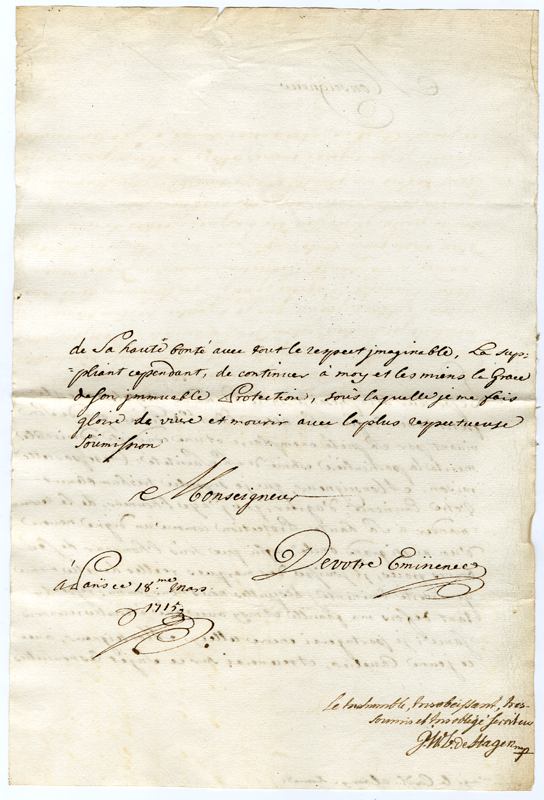 de Sa hautë bonté avec tout le respect jmaginable, La sup=
=pliant cependant, de continuer à moy et les miens la Grace
deson jmmuable Protection, sous laquelle je me fais
gloire de vivre et mourir avec laplus respectueuse
Soümission
Monseigneur
Devotre Emiñence
à Paris ce 18.me Mars
1715
Le treshumble, tresobeissant, tres
soumis et tresobligé serviteur
de Hagen